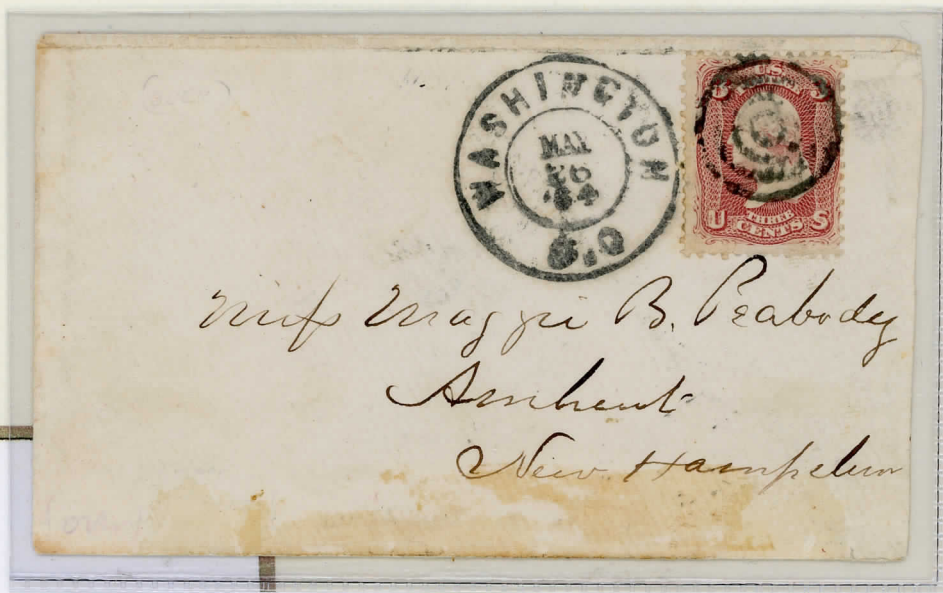 WASHINGTON
MAY
26
'64
D.C
U.S.
3 3
THREE
U CENTS S
Miss Maggie B. Peabody
Amherst
New Hampshire